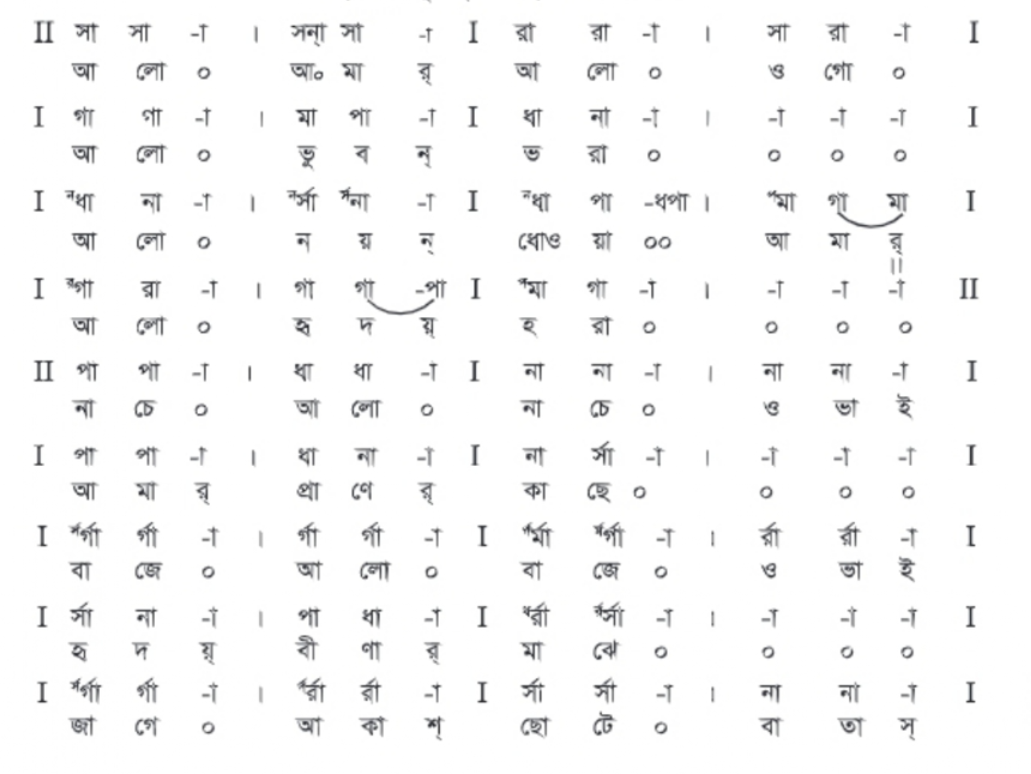 II সা সা -া । সন্া সা -া I রা রা -া । সা রা -া I
আ লো ০ আ০ মা র্ আ লো ০ ও গো ০
I গা গা -া । মা পা -া I ধা না -া । -া -া -া I
আ লো ০ ভু ব ন্ ভ রা ০ ০ ০ ০
I নধা না -া । নর্সা র্সনা -া I নধা পা -ধপা । পমা গা মা I
আ লো ০ ন য় ন্ ধোও য়া ০০ আ মা র্
I রগা রা -া । গা গা -পা I পমা গা -া । -া -া -া II
আ লো ০ হৃ দ য়্ হ রা ০ ০ ০ ০
II পা পা -া । ধা ধা -া I না না -া । না না -া I
না চে ০ আ লো ০ না চে ০ ও ভা ই
I পা পা -া । ধা না -া I না র্সা -া । -া -া -া I
আ মা র্ প্রা ণে র্ কা ছে ০ ০ ০ ০
I র্সর্গা র্গা -া । র্গা র্গা -া I র্মা র্গা -া । র্রা র্রা -া I
বা জে ০ আ লো ০ বা জে ০ ও ভা ই
I র্সা না -া । পা ধা -া I ধর্রা র্সা -া । -া -া -া I
হৃ দ য়্ বী ণা র্ মা ঝে ০ ০ ০ ০
I র্সর্গা র্গা -া । র্রা র্রা -া I র্সা র্সা -া । না না -া I
জা গে ০ আ কা শ্ ছো টে ০ বা তা স্